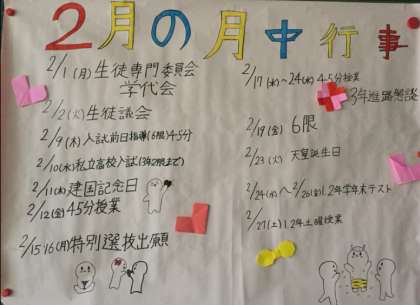 2月の月中行事
2/1(月)生徒専門委員会
学代会
2/2(火)生徒議会
2/9(木)入試前日指導(6限)45分
2/10(水)私立高校入試(3年2限まで)
2/11(木)建国記念日
2/12(金)45分授業
2/15.16(月)特別選抜出願
2/17(水)~24(水)45分授業
3年進路懇談
2/19(金)6限
2/23(火)天皇誕生日
2/24(水)へ2/26(金)1.2年学年末テスト
2/27(土)1.2年土曜授業